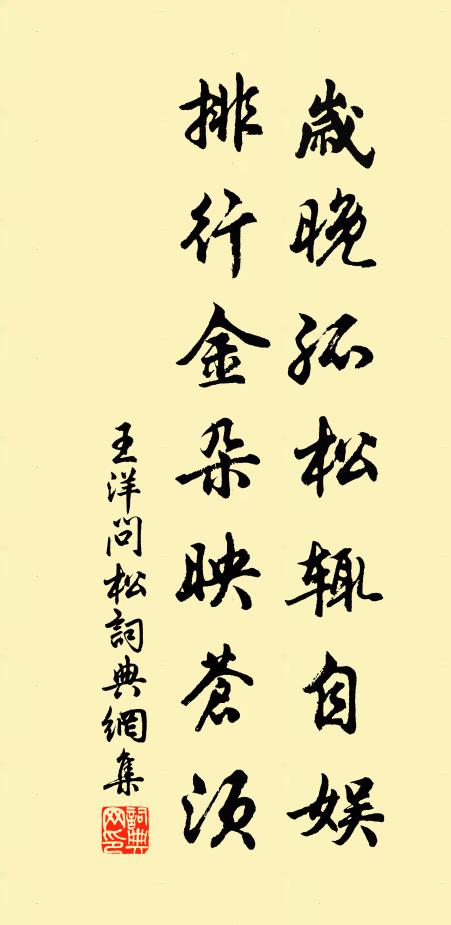 歲晚孤松輒自娛
排行金朵映蒼須
王洋問松詞典網集
詞典網印